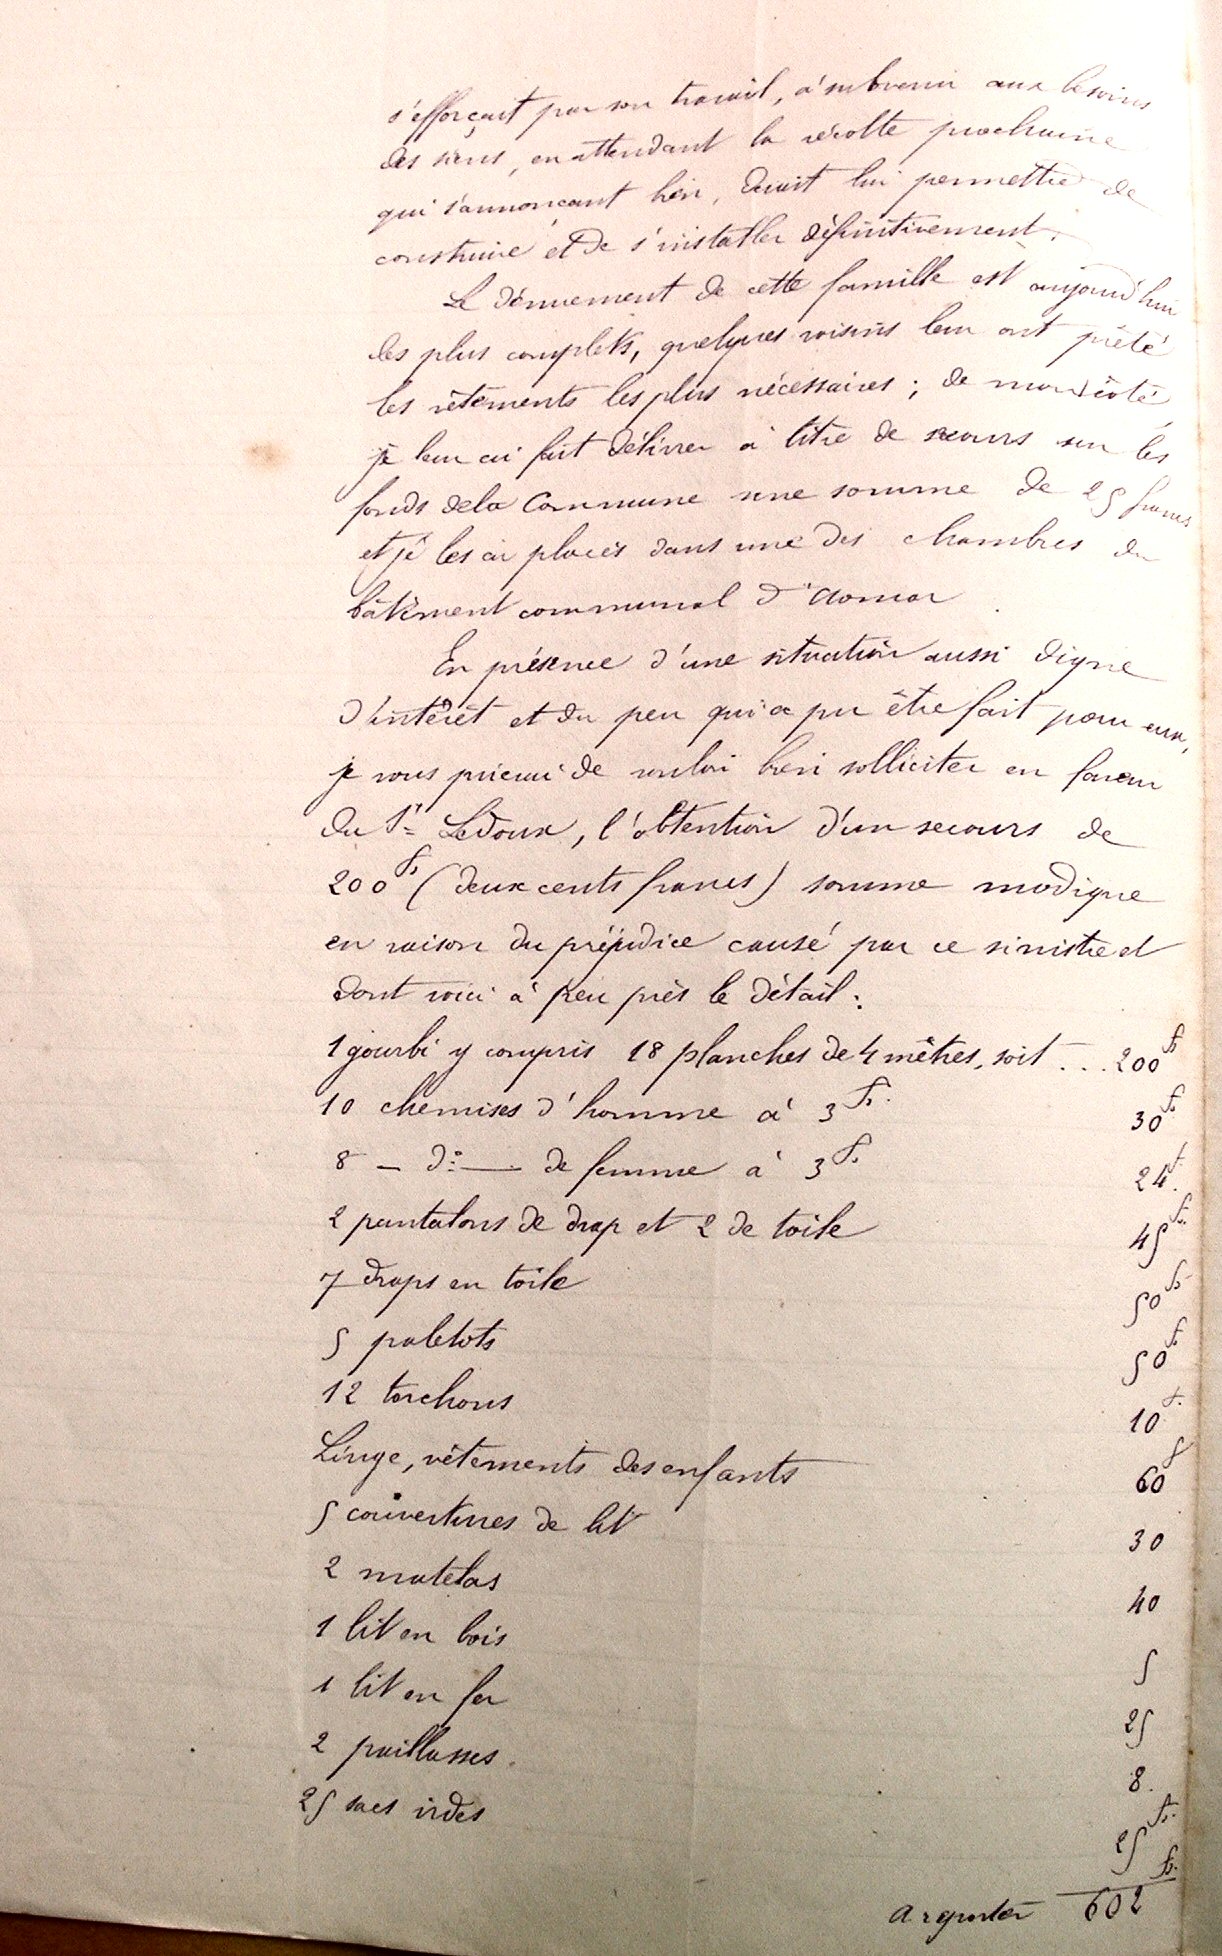 s'efforçait par son travail, à subvenir aux besoins
des siens, en attendant la récolte prochaine
qui s'annonçant bien, devait lui permettre de
construire et de s'installer définitivement.
Le dénuement de cette famille est aujourd'hui
des plus complets, quelques voisins leur ont prêté
les vêtements les plus nécessaires ; de mon côté
je leur ai fait délivrer à titre de secours sur les
fonds de la Commune une somme de 25 francs
et je les ai placés dans une des chambres du
bâtiment communal d'Aomar
En présence d'une situation aussi digne
d'intérêt et du peu qui a pu être fait pour eux,
je vous prierai de vouloir bien solliciter en faveur
du Sr Ledoux, l'obtention d'un secours de
200 fs (deux cents francs) somme modique
en raison du préjudice causé par ce sinistre et
dont voici à peu près le détail :
1 gourbi y compris 18 planches de 4 mètres, soit ... 200 fs
10 chemises d'homme à 3 fs. 30 fs
8 — do — de femme à 3 fs. 24 f.
2 pantalons de drap et 2 de toile 45 fs.
7 draps en toile 50 fs
5 paletots 50 fs
12 torchons 10 f.
Linge, vêtements des enfants 60 f
5 couvertures de lit 30
2 matelas 40
1 lit en bois 5
1 lit en fer 25
2 paillasses 8.
25 sacs vides 25 fs.
A reporter 602 fs.